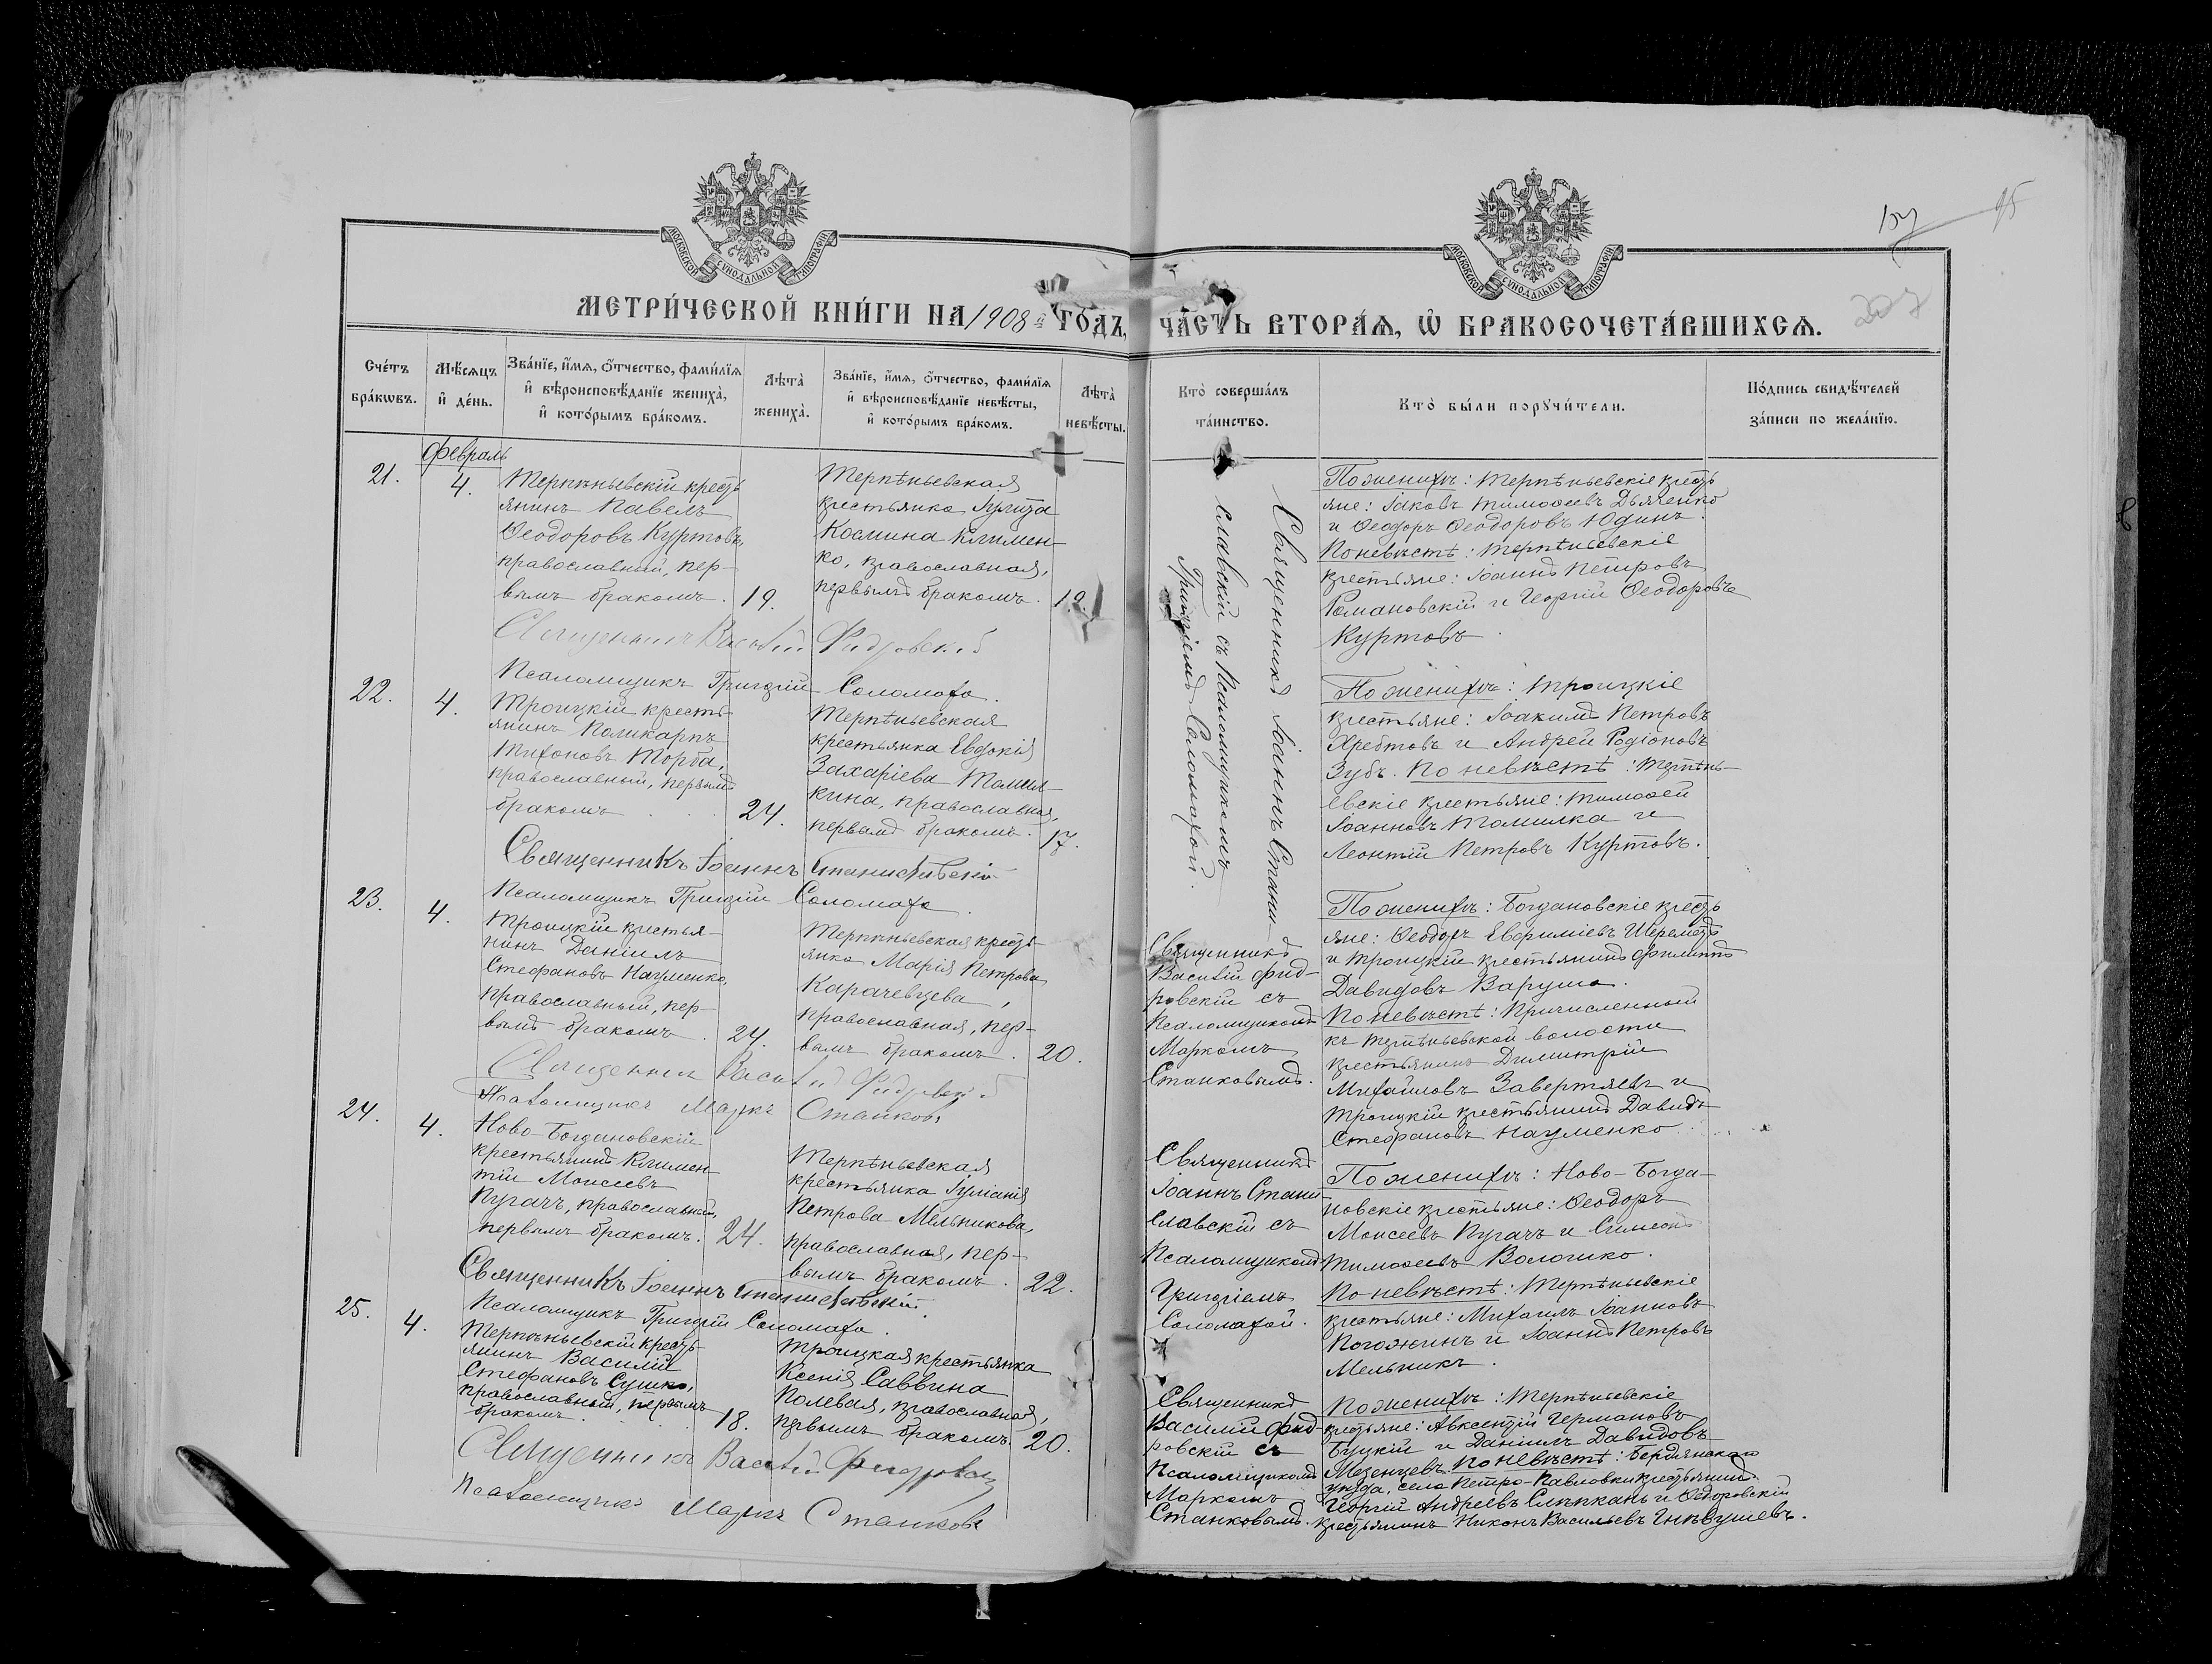 МОСКОВСКОЙ СѴНОДАЛЬНОЙ ТИПОГРАФІИ
МОСКОВСКОЙ СѴНОДАЛЬНОЙ ТИПОГРАФІИ
95
МЕТРИ́ЧЕСКОЙ КНИ́ГИ НА 1908 й ГО́ДЪ, ЧА́СТЬ ВТОРА́Ѧ, Ѽ БРАКОСОЧЕТА́ВШИХСѦ.
207
Сче́тъ бра́кѡвъ.
Мѣ́сяцъ и҆ де́нь.
Зва́нїе, и҆́мѧ, ѻ҆́тчество, фами́лїѧ
и҆ вѣроисповѣ́данїе жениха̀,
и҆ кото́рымъ бра́комъ.
Лѣта̀ жениха̀.
Зва́нїе, и҆́мѧ, ѻ҆́тчество, фами́лїѧ
и҆ вѣроисповѣ́данїе невѣ́сты,
и҆ кото́рымъ бра́комъ.
Лѣта̀ невѣ́сты.
Кто̀ соверша́лъ
та́инство.
Кто̀ бы́ли порꙋчи́тели.
По́дпись свидѣ́телей
за́писи по жела́нїю.
Февраль
21.
4.
Терпѣньевскій кресть
янинъ Павелъ
Ѳеодоровъ Куртовъ,
православный, пер-
вымъ бракомъ.
19.
Терпѣньевская
крестьянка
Космина Климен-
ко, православная,
первымъ бракомъ.
19.
Священникъ Іоаннъ Стани-
славскій съ Псаломщикомъ
Григоріемъ Соломахой.
По женихѣ: Терпѣньевскіе кресть
яне: Іаковъ Тимоѳеевъ Дьяченко
и Ѳеодоръ Ѳеодоровъ Юдинъ.
По невѣстѣ: Терпѣньевскіе
крестьяне: Іоаннъ Петровъ
Романовскій и Георгій Ѳеодоровъ
Куртовъ.
Священникъ Василій Фидровскій
Псаломщикъ Григорій Соломаха.
22.
4.
Троицкій кресть-
янинъ Поликарпъ
Тихоновъ Торба,
православный, первымъ
бракомъ
24.
Терпѣньевская
крестьянка Евдокія
Захаріева Томил-
кина, православная,
первымъ бракомъ.
17.
По женихѣ: Троицкіе
крестьяне: Іоакимъ Петровъ
Хребтовъ и Андрей Родіоновъ
Зубъ. По невѣстѣ: Терпѣнь-
евскіе крестьяне: Тимоѳей
Іоанновъ Томилка и
Леонтій Петровъ Куртовъ.
Священникъ Іоаннъ Станиславскій
Псаломщикъ Григорій Соломаха.
23.
4.
Троицкій крестья-
нинъ Даніилъ
Стефановъ Науменко,
православный, пер-
вымъ бракомъ.
24.
Терпѣньевская кресть-
янка Марія Петрова
Карачевцева,
православная, пер-
вымъ бракомъ.
20.
Священникъ
Василій Фид-
ровскій съ
Псаломщикомъ
Маркомъ
Станковымъ.
По женихѣ: Богдановскіе кресть
яне: Ѳеодоръ Евфиміевъ Шереметъ
и Троицкій крестьянинъ Филиппъ
Давидовъ Варуша.
По невѣстѣ: Причисленный
къ Терпѣньевской волости
крестьянинъ Димитрій
Михайловъ Завертяевъ и
Троицкій крестьянинъ Давидъ
Стефановъ Науменко.
Священникъ Василій Фидровскій
Псаломщикъ Маркъ Станковъ
24.
4.
Ново-Богдановскій
крестьянинъ Климен-
тій Моисеевъ
Пугачъ, православный,
первымъ бракомъ.
24.
Терпѣньевская
крестьянка Іуліанія
Петрова Мельникова,
православная, пер-
вымъ бракомъ.
22.
Священникъ
Іоаннъ Стани-
славскій съ
Псаломщикомъ
Григоріемъ
Соломахой.
По женихѣ: Ново-Богда-
новскіе крестьяне: Ѳеодоръ
Моисеевъ Пугачъ и Симеонъ
Тимоѳеевъ Волошко.
По невѣстѣ: Терпѣньевскіе
крестьяне: Михаилъ Іоанновъ
Погожинъ и Іоаннъ Петровъ
Мельникъ.
Священникъ Іоаннъ Станиславскій
Псаломщикъ Григорій Соломаха.
25.
4.
Терпѣньевскій кресть-
янинъ Василій
Стефановъ Сушко,
православный, первымъ
бракомъ.
18.
Троицкая крестьянка
Ксенія Саввина
Полевая, православная,
первымъ бракомъ.
20.
Священникъ
Василій Фид-
ровскій съ
Псаломщикомъ
Маркомъ
Станковымъ.
По женихѣ: Терпѣньевскіе
крестьяне: Авксентій Германовъ
Буцкій и Даніилъ Давидовъ
Мезенцевъ. По невѣстѣ: Бердянскаго
уѣзда, села Петро-Павловки крестьянинъ
Георгій Андреевъ Слѣпкань и Ѳедоровскій
крестьянинъ Никонъ Васильевъ
Священникъ Василій Фидровскій
Псаломщикъ Маркъ Станковъ